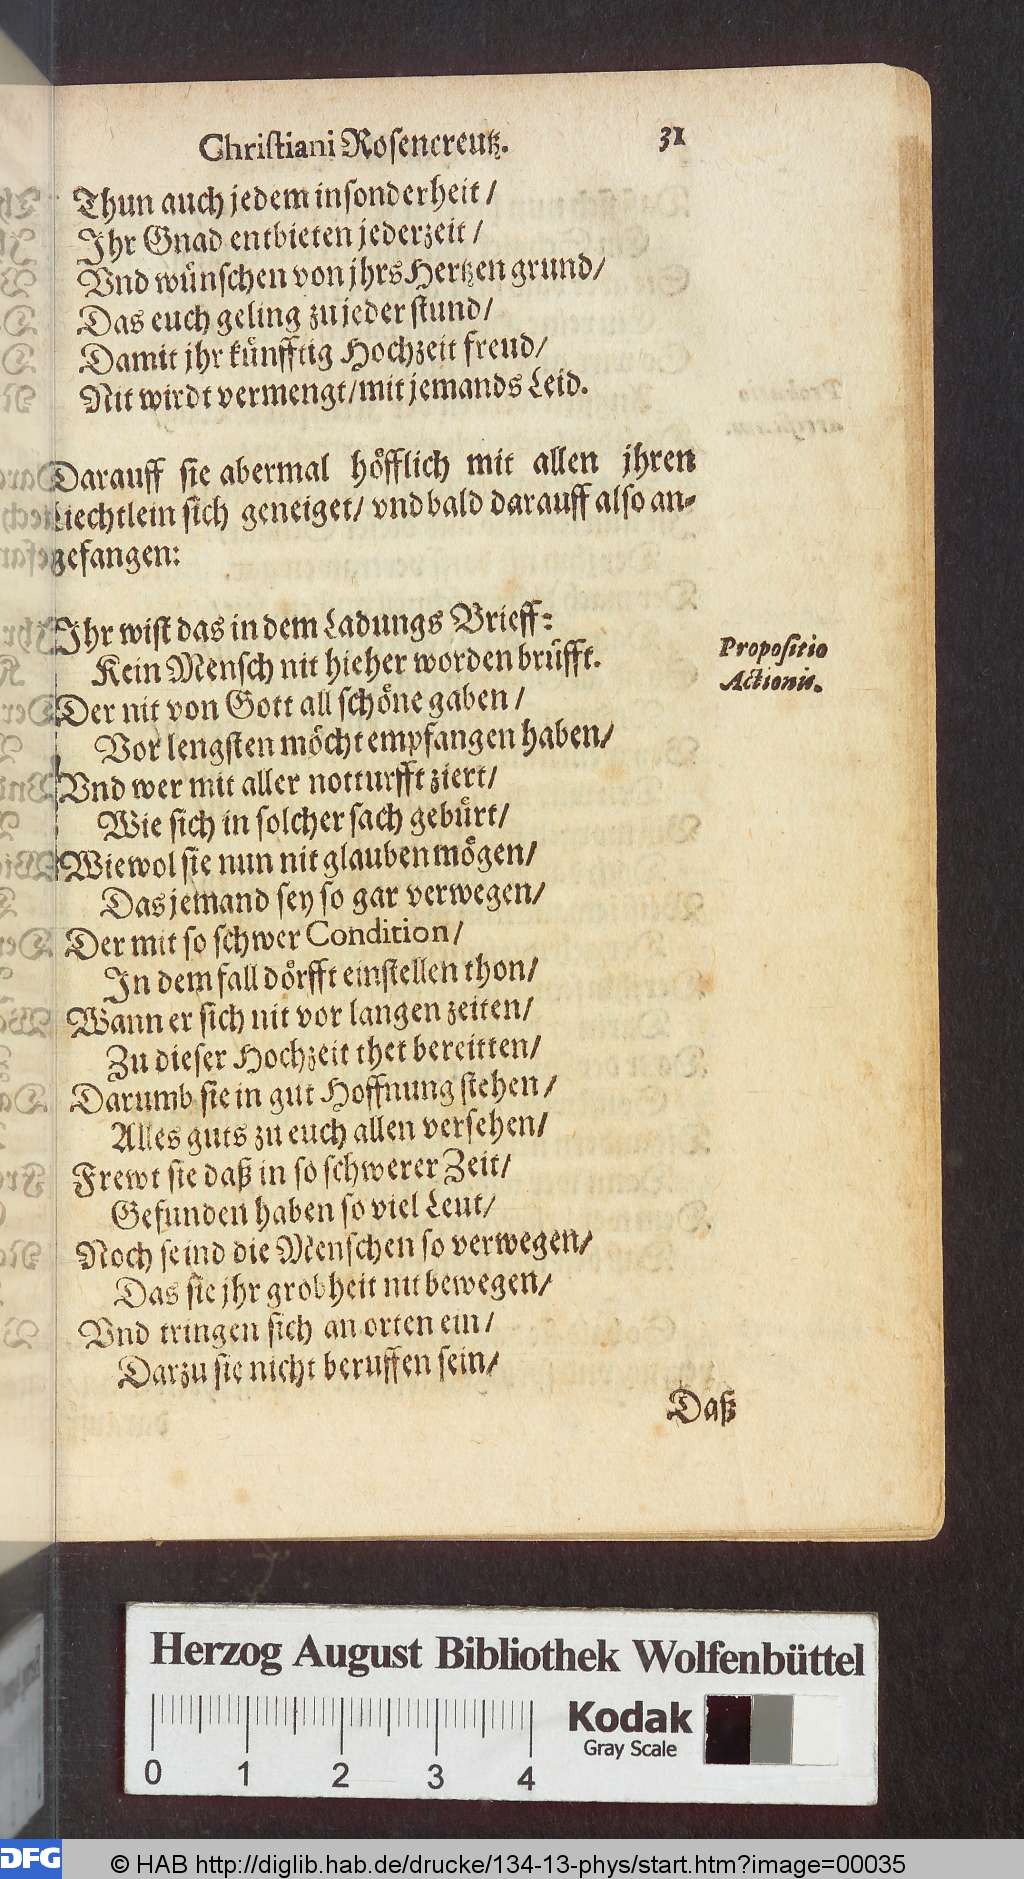 Chriſtiani Roſencreutz. 31
Thun auch jedem inſonderheit /
Ihr Gnad entbieten jederzeit /
Vnd wuͤnſchen von jhrs Hertzen grund/
Das euch geling zu jeder ſtund/
Damit jhr kuͤnfftig Hochzeit freud/
Nit wirdt vermengt/mit jemands Leid.
Darauff ſie abermal hoͤfflich mit allen jhren
Liechtlein ſich geneiget/ vnd bald darauff alſo an⸗
gefangen:
Ihr wiſt das in dem Ladungs Brieff:
Kein Menſch nit hieher worden bruͤfft.
Propoſitio
Actionis.
Der nit von Gott all ſchoͤne gaben /
Vor lengſten moͤcht empfangen haben/
Vnd wer mit aller notturfft ziert/
Wie ſich in ſolcher ſach gebuͤrt/
Wiewol ſie nun nit glauben moͤgen/
Das jemand ſey ſo gar verwegen/
Der mit ſo ſchwer Condition/
In dem fall doͤrfft einſtellen thon/
Wann er ſich nit vor langen zeiten/
Zu dieſer Hochzeit thet bereitten/
Darumb ſie in gut Hoffnung ſtehen/
Alles guts zu euch allen verſehen/
Frewt ſie daß in ſo ſchwerer Zeit/
Gefunden haben ſo viel Leut/
Noch ſeind die Menſchen ſo verwegen/
Das ſie jhr grobheit nit bewegen/
Vnd tringen ſich an orten ein/
Darzu ſie nicht beruffen ſein/
Daß
Herzog August Bibliothek Wolfenbüttel
Kodak
Gray Scale
0 1 2 3 4
DFG © HAB http://diglib.hab.de/drucke/134-13-phys/start.htm?image=00035